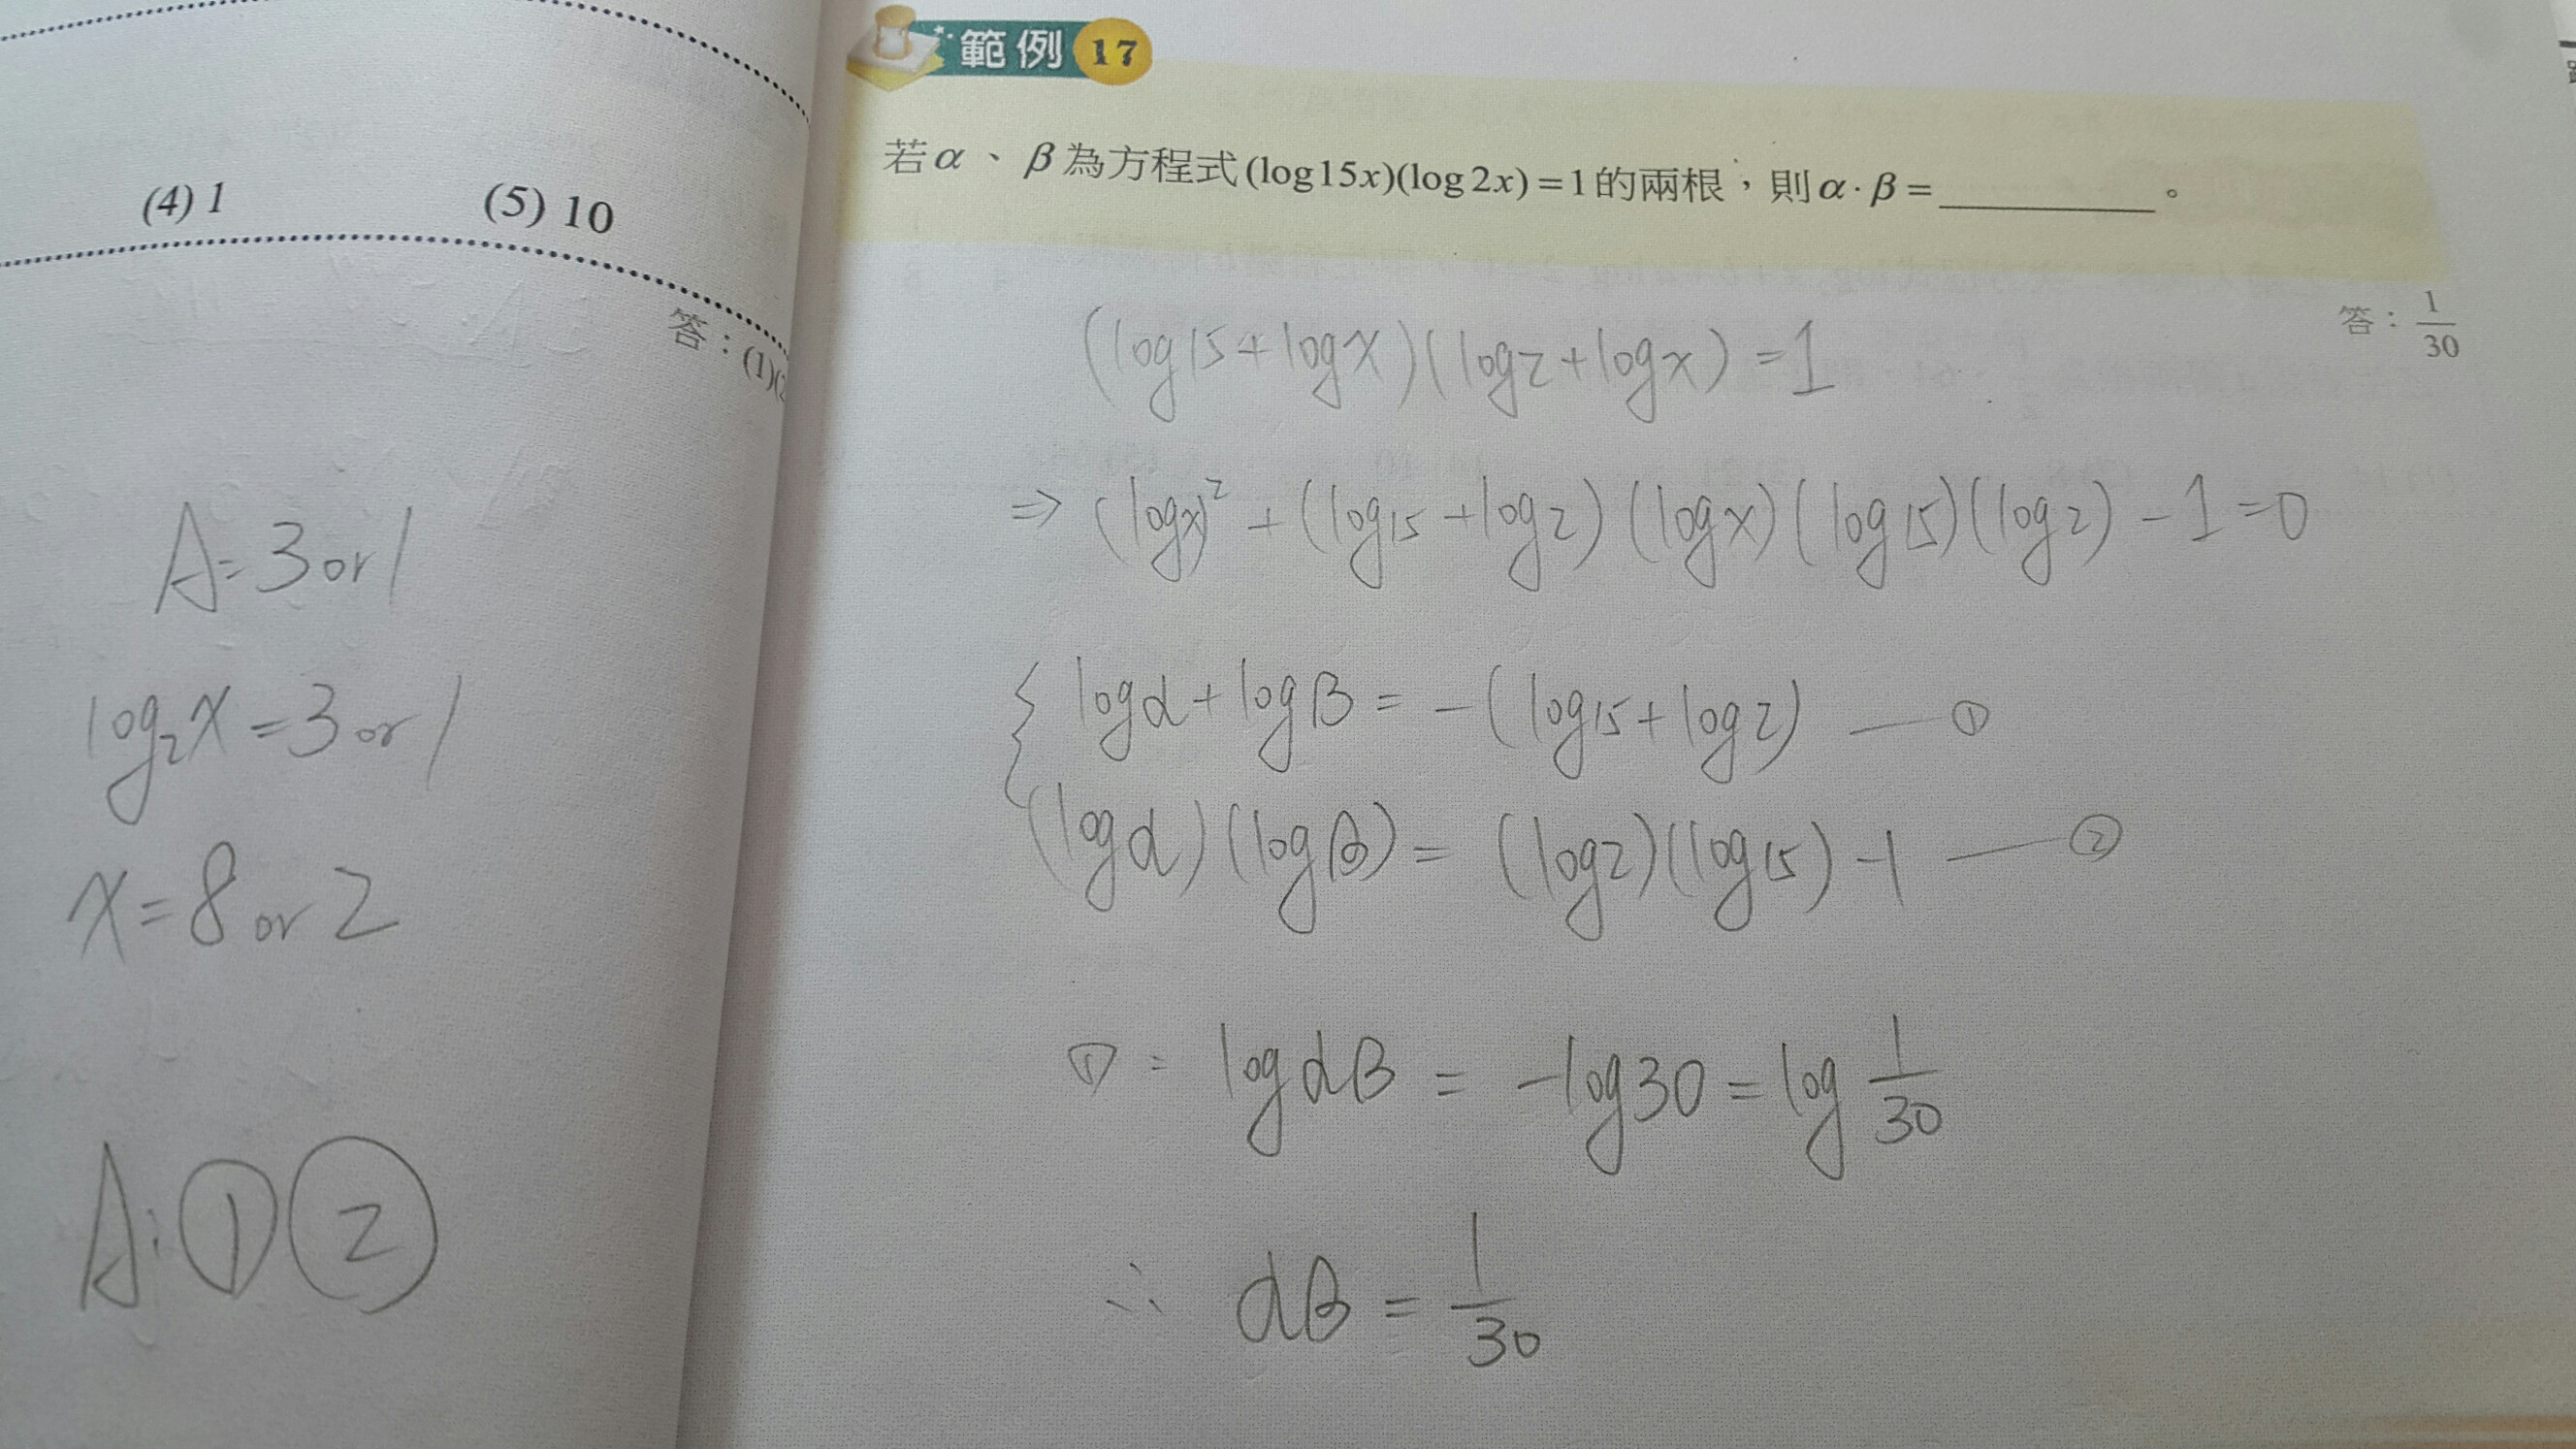 (4) 1 (5) 10
答：(1)(2
A=3 or 1
log₂x=3 or 1
x=8 or 2
A:①②
範例 17
若α、β為方程式(log15x)(log2x)=1的兩根，則α·β=________。
答：1/30
(log15+logx)(log2+logx)=1
⇒ (logx)²+(log15+log2)(logx)(log15)(log2)-1=0
{ logα+logβ=-(log15+log2) —①
(logα)(logβ)=(log2)(log15)-1 —②
①= logαβ=-log30=log 1/30
∴ αβ=1/30